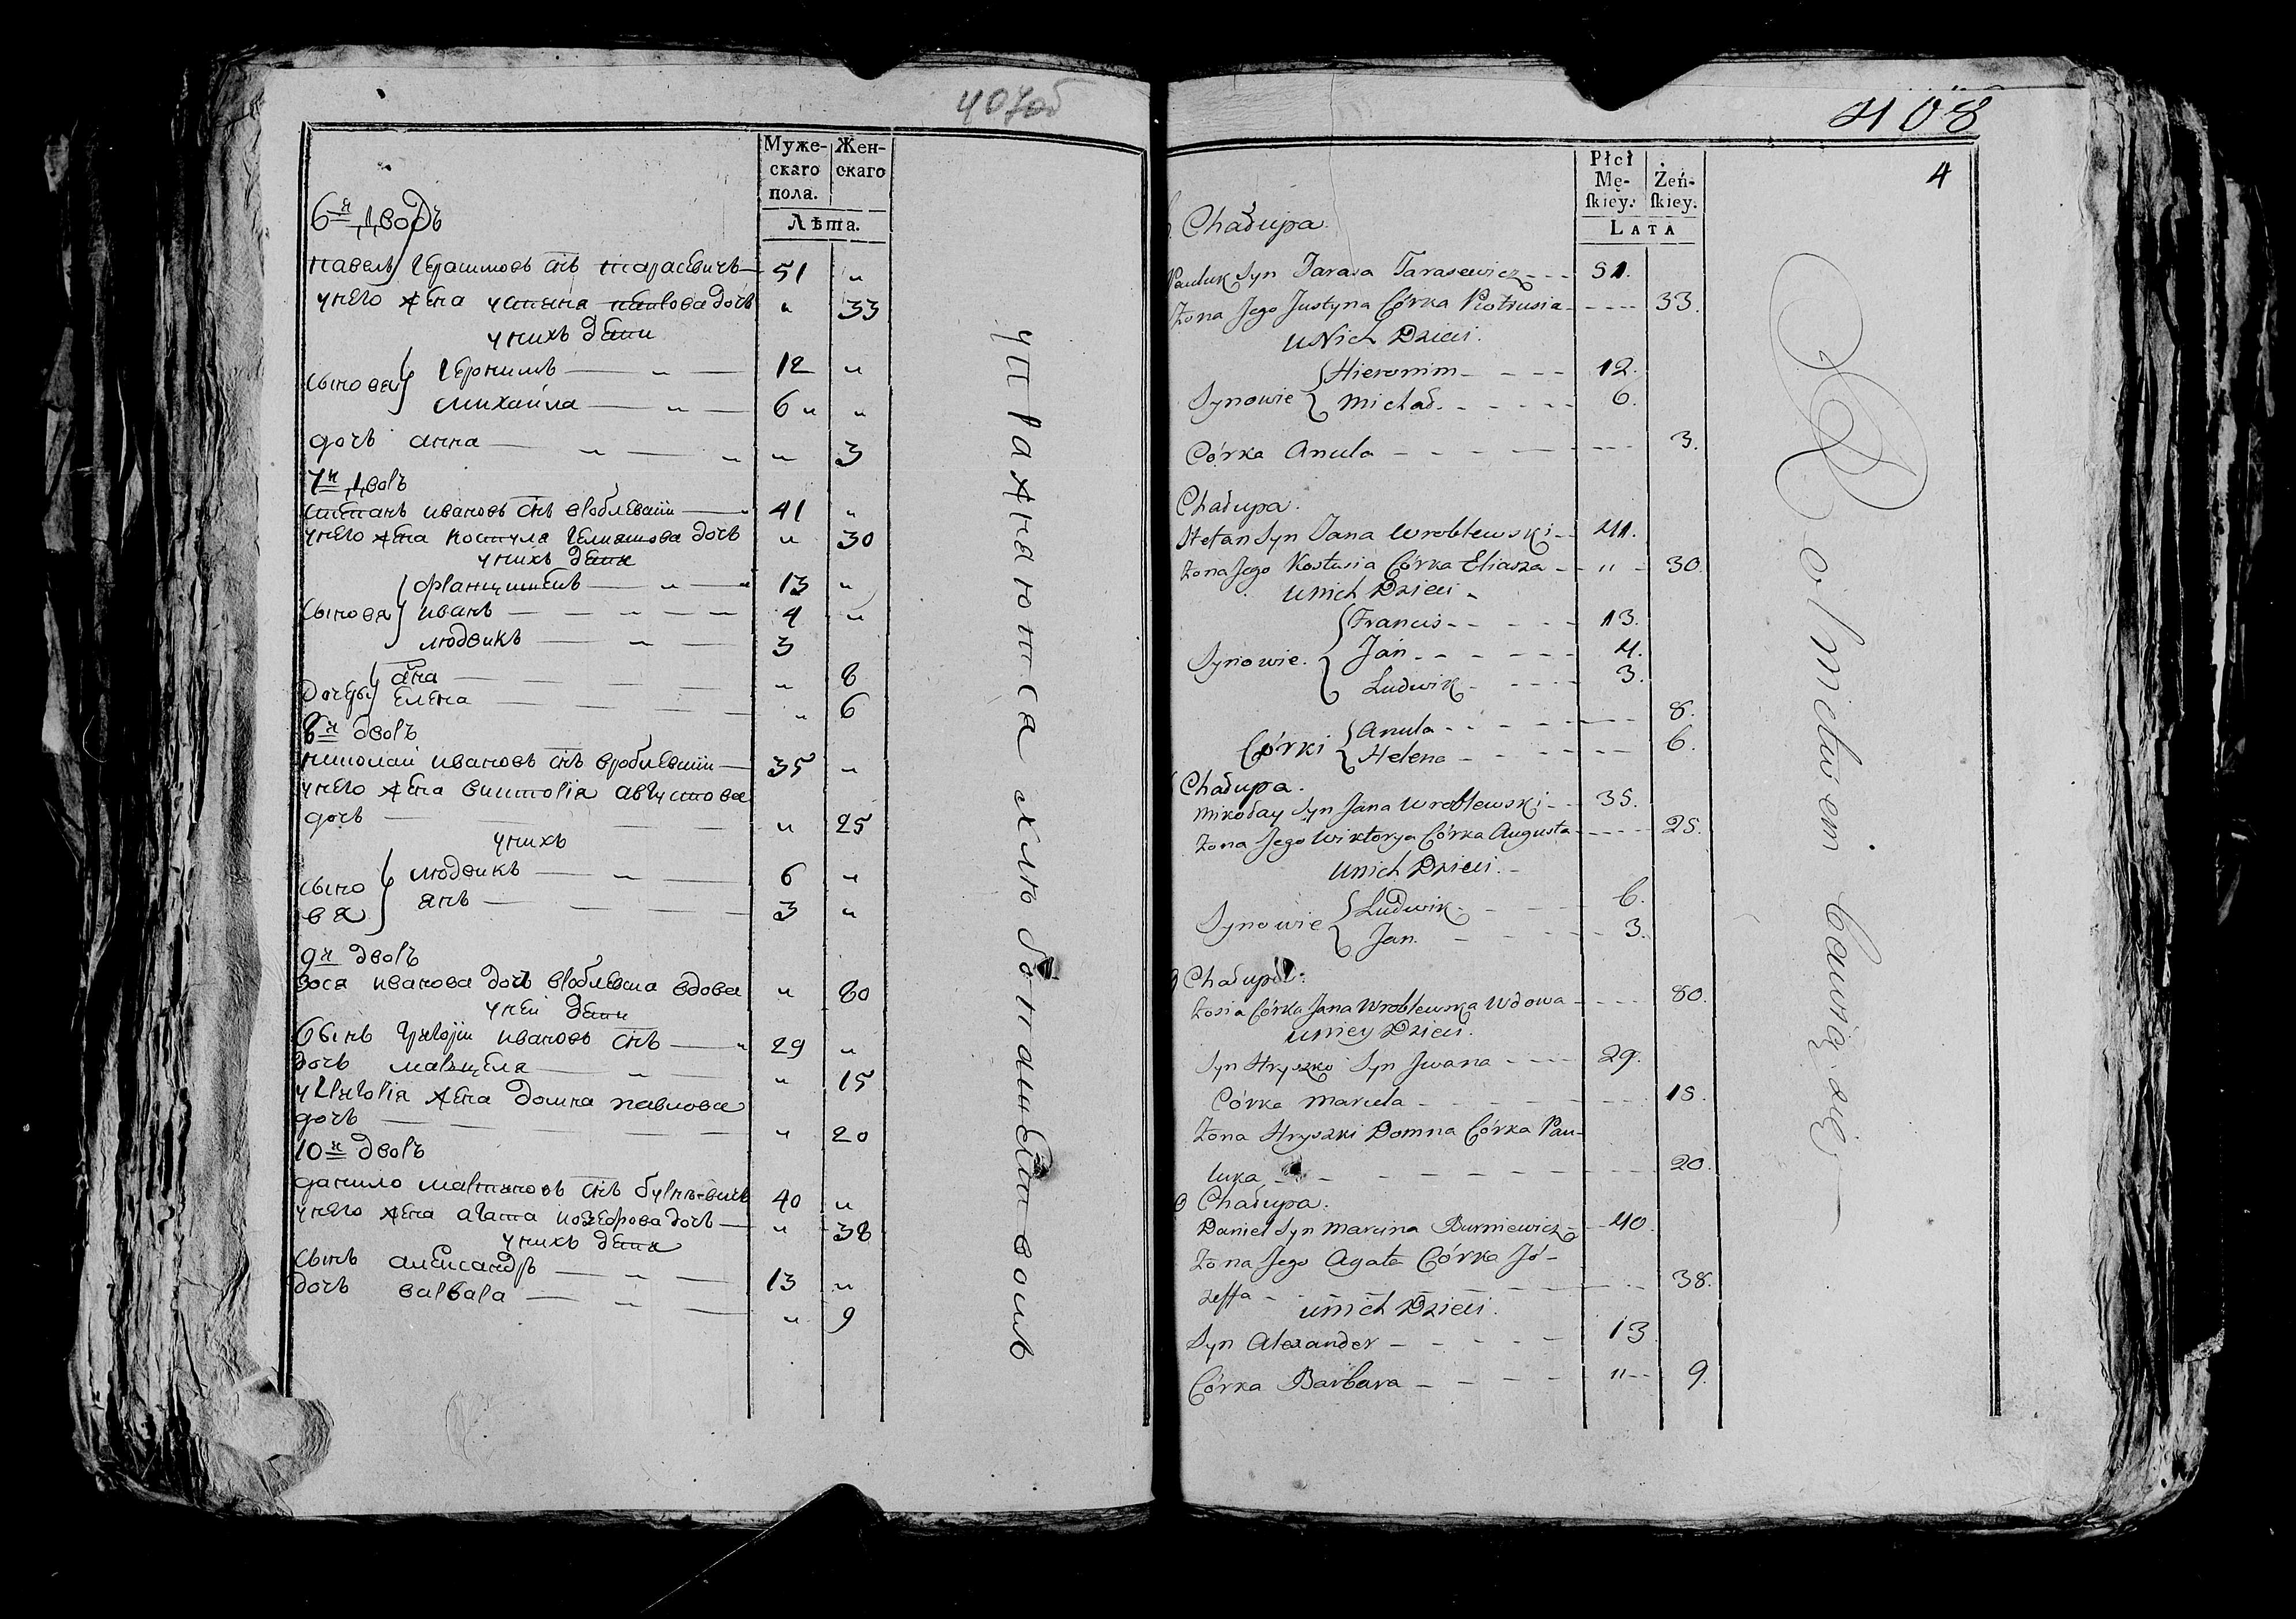 407об
Муже-
скаго
пола.
Жен-
скаго
Лѣта.
6й Дворъ
Павелъ Герасимовъ снъ Тарасевичъ — 51 "
у него жена Устина дочь " 33
у нихъ дети
Сыновя { Геронимъ — " — 12 "
Михайла — " — 6 " "
дочь анна — " — " " 3
7й Дворъ
Степанъ ивановъ снъ вроблевский — 41 "
у него жена костуля Гелиашова дочь " 30
у нихъ дети
Сыновя { францишекъ — " — 13 "
иванъ — " — 4 "
людвикъ — " — 3
дочеры { ана — " 8
елена — " 6
8й дворъ
николай ивановъ снъ вроблевский — 35 "
у него жена викторія августова
дочь — " 25
у нихъ
Сыно
вя { людвикъ — " — 6 "
янъ — 3 "
9й дворъ
Зося иванова дочь вроблевска вдова " 80
у ней дети
Сынъ Григорій ивановъ снъ — " 29 "
дочь марцеля — " — " 15
у Григорія жена домна павлова
дочь — " 20
10й дворъ
данило мартиновъ снъ 40 "
у него жена агата иозефова дочь — " 38
у нихъ дети
Сынъ александръ — " — 13 "
дочь варвара — " — " 9
упражняются хлѣбопашествомъ
408
4
Płci
Mę-
skiey.
Żeń-
skiey.
LATA
Chałupa.
Pauluk Syn Tarasa Tarasewicz - - - 51.
Żona Jego Justyna Córka Piotrusia - - - - 33.
U Nich Dzieci.
Synowie { Hieronim - - - - 12.
Michał. - - - - - 6.
Córka Anula - - - - - - - 3.
Chałupa.
Stefan Syn Jana Wroblewski - - 41.
Żona Jego Kostusia Córka Eliasza - - " - 30.
U nich Dzieci -
Synowie. { Francis - - - - - 13.
Jan - - - - - - 4.
Ludwik - - - - - 3.
Córki { Anula - - - - - - - 8.
Helena - - - - - - 6.
Chałupa.
Mikołay Syn Jana Wroblewski - - 35.
Żona Jego Wiktorya Córka Augusta - - - - 25.
U nich Dzieci. -
Synowie { Ludwik - - - 6.
Jan. - - - - - 3.
9 Chałupa.
Zosia Córka Jana Wroblewska Wdowa - - - - 80.
U niey Dzieci.
Syn Hryszko Syn Jwana - - - - 29.
Córka Marcela - - - - - - - 15.
Żona Hryszki Domna Córka Pau-
luka - - - - - - - - 20.
0 Chałupa.
Daniel Syn Marcina Burniewicz - - 40.
Żona Jego Agata Córka Jó-
zeffa - - - - - - - - 38.
U nich Dzieci.
Syn Alexander - - - - - 13.
Córka Barbara - - - - - " - - 9.
Rolnictwem bawią się